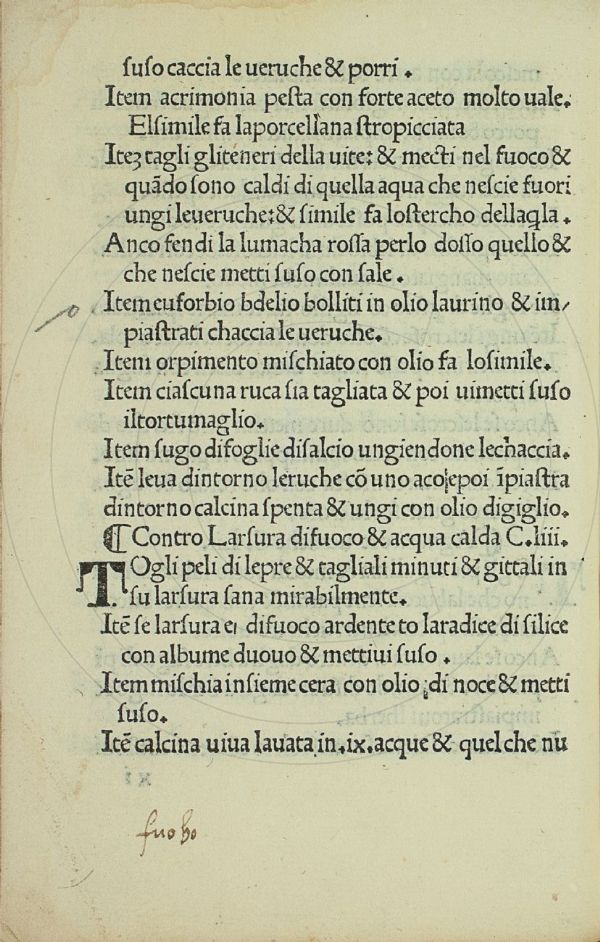 ſuſo caccia le ueruche & porri .
Item acrimonia peſta con forte aceto molto uale.
Elſimile fa laporcellana ſtropicciata
Iteʒ tagli gliteneri della uite: & mecti nel fuoco &
quãdo ſono caldi di quella aqua che neſcie fuori
ungi leueruche:& ſimile fa loſtercho dellaq̃la .
Anco fendi la lumacha roſſa perlo doſſo quello &
che neſcie metti ſuſo con ſale .
Item euforbio bdelio bolliti in olio laurino & im/
piaſtrati chaccia le ueruche.
Item orpimento miſchiato con olio fa loſimile.
Item ciaſcuna ruca ſia tagliata & poi uimetti ſuſo
iltortumaglio.
Item ſugo difoglie diſalcio ungiendone lechaccia.
Itẽ leua dintorno leruche cõ uno aco|epoi ĩpiaſtra
dintorno calcina ſpenta & ungi con olio digiglio.
⸿ Contro Larſura difuoco & acqua calda C.liii.
TOgli peli di lepre & tagliali minuti & gittali in
ſu larſura ſana mirabilmente.
Itẽ ſe larſura e difuoco ardente to laradice di ſilice
con albume duouo & mettiui ſuſo .
Item miſchia inſieme cera con olio di noce & metti
ſuſo.
Itẽ calcina uiua lauata in.ix.acque & quel che nu
fuoho